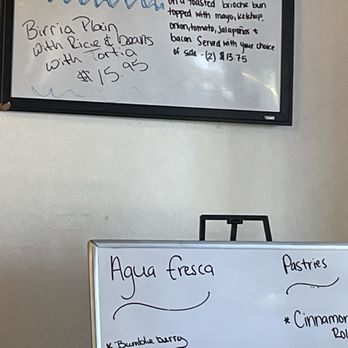 Birria Plain
with Rice & beans
with Tortia
$15.95
on a toasted brioche bun
topped with mayo, ketchup,
onion, tomato, Jalapeños &
bacon Served with your choice
of side - (2) $13.75
Agua fresca
* Bumble berry
Pastries
* Cinnamon
Rol